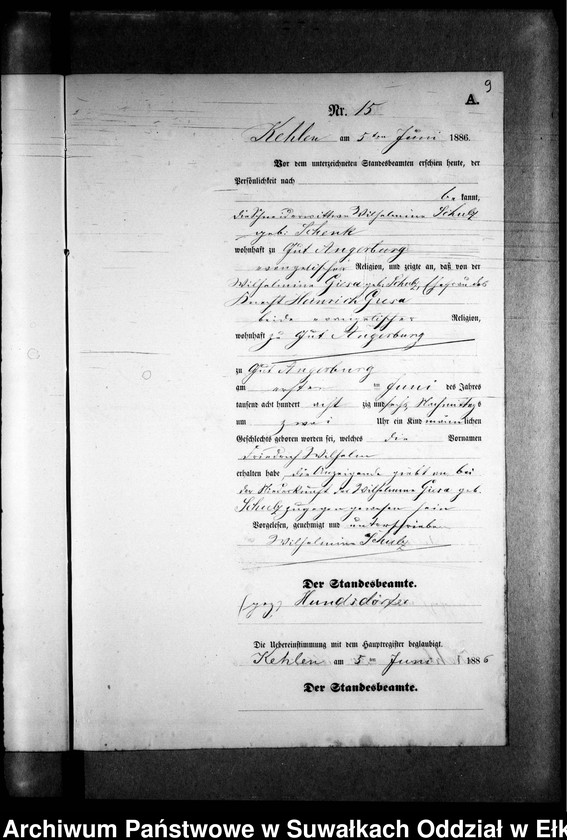 9
A.
Nr. 15
Kehlen am 5ten Juni 1886.
Vor dem unterzeichneten Standesbeamten erschien heute, der
Persönlichkeit nach
be kannt,
die Schneiderwittwe Wilhelmine Schulz
geb: Schenk
wohnhaft zu Gut Angerburg
evangelischer Religion, und zeigte an, daß von der
Wilhelmine Giesa geb: Schulz, Ehefrau des
Knecht Heinrich Giesa
beide evangelischer Religion,
wohnhaft zu Gut Angerburg
zu Gut Angerburg
am ersten Juni des Jahres
tausend acht hundert acht zig und sechs Nachmittags
um zwei Uhr ein Kind männlichen
Geschlechts geboren worden sei, welches die Vornamen
Friedrich Wilhelm
erhalten habe die Anzeigende giebt an bei
der Niederkunft der Wilhelmine Giesa geb.
Schulz zugegen gewesen sein
Vorgelesen, genehmigt und unterschrieben
Wilhelmine Schulz
Der Standesbeamte.
(gez)
Die Uebereinstimmung mit dem Hauptregister beglaubigt.
Kehlen am 5ten Juni 1886
Der Standesbeamte.
Archiwum Państwowe w Suwałkach Oddział w Ełk